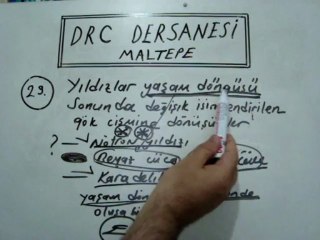 DRC DERSANESİ
MALTEPE
29. Yıldızlar yaşam döngüsü
Sonunda değişik isimlendirilen
gök cismine dönüşürler
? → Nötron yıldızı
Beyaz cüce
→ Karadelik
yaşam